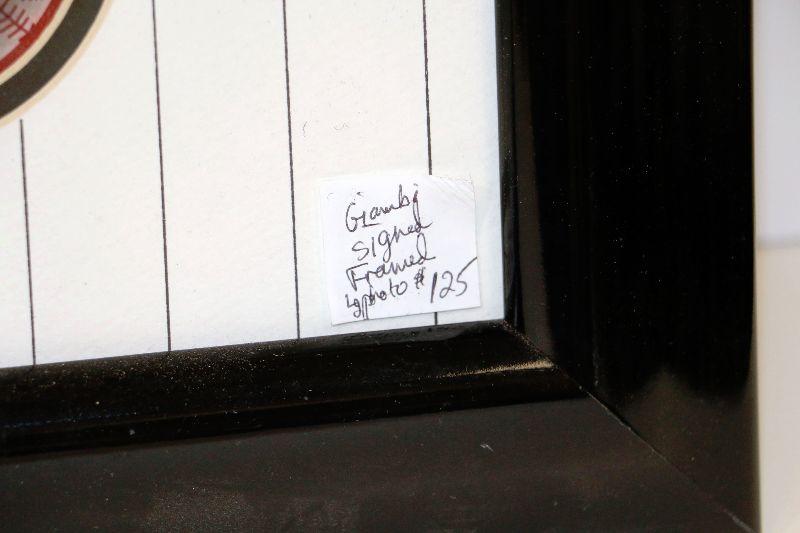 Giambi
Signed
Framed
Lg photo $125